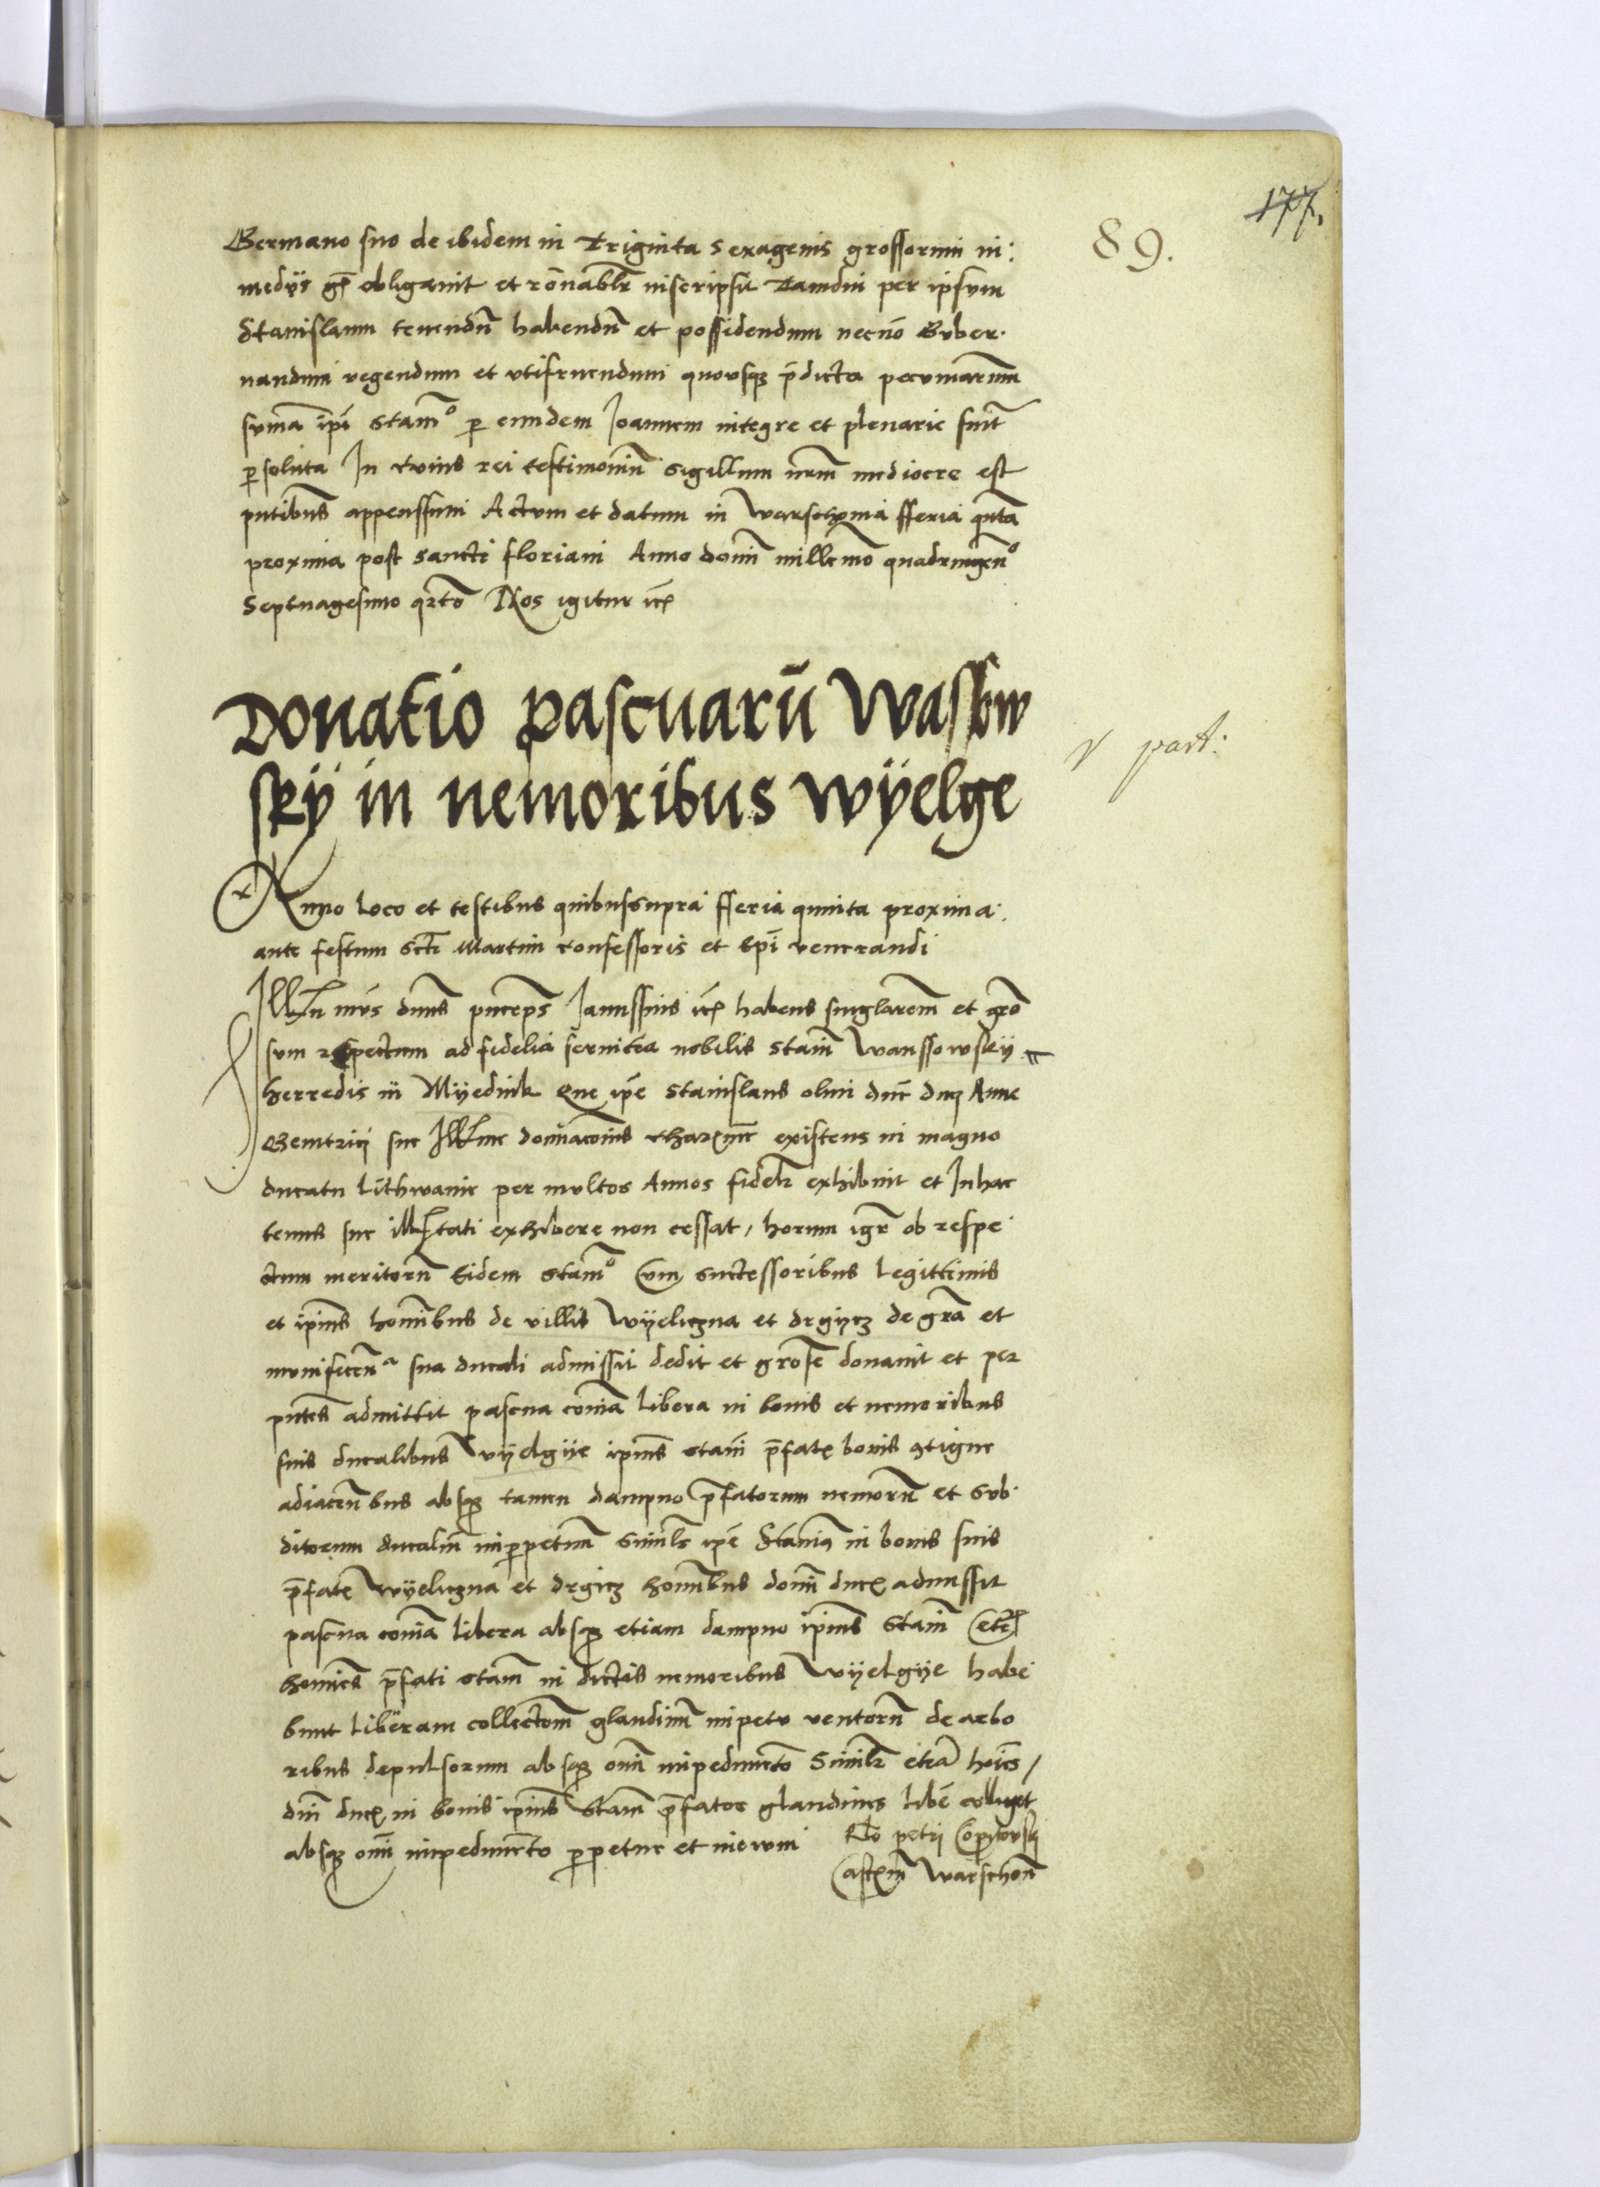 177.
89.
Germano suo de ibidem in Triginta sexagenis grossorum in:
medÿs gr̃ obligavit et rõnablr̃ inscripsit Tamdiu per ipsum
Stanislaum tenendũ habendũ et possidendum necnõ Guber-
nandum regendum et utifruendum quousqʒ p̃dicta pecuniarum
sum̃a ip̃i Stam̃o per eundem Joannem integre et plenarie fuit̃
persoluta In cuius rei testimoniũ sigillum nr̃m mediocre est
pñtibus appenssum Actum et datum in Warschovia fferia qñta
proxima post sancti floriani Anno domĩ millẽmo quadringeño
Septuagesimo qr̃to Nos igitur etc̃
Donatio pascuarũ Wassow
skÿ in nemoribus Wÿelge
v part:
Anno loco et testibus quibus supra fferia quinta proxima
ante festum sctĩ Martini confessoris et Ep̃i venerandi
Ill̃mus dñus prĩceps Janussius etc̃ habens singlarem̃ et grõ
sum respectum ad fidelia servitia nobilis Stam̃ Wanssowskÿ
herredis ĩ Mÿednik Que ip̃e Stanislaus olim duc̃ dñe Anne
Genitrici sue Ill̃me domiacõnis char̃me existens in magno
ducatu Lithwanie per multos Annos fidelr̃ exhibuit et In hac
tenus sue ill̃tati exhibere non cessat, horum igr̃ ob respe
ctum meritorũ Eidem Stam̃o cum successoribus legittimis
et ipius̃ homĩbus de villis Wÿeliczna et drgÿcz de grã et
munificeña sua ducali admissit dedit et grõse donavit et per
pñtes admittit pascua com̃a libera in bonis et nemoribus
suis ducalibus Wÿelgÿe ipius̃ Stam̃ p̃fate bonis ꝯtigue
adiaceñbus absqʒ tamen dampno p̃fatorum nemorũ et sub-
ditorum ducaliũ inperpetuũ Similr̃ ip̃e Stanis in bonis suis
p̃fate Wÿeliczna et drgicz homĩbus domĩ duc admissit
pascua com̃a libera absqʒ etiam dampno ipius̃ Stam̃ etc̃
homies̃ p̃fati Stam̃ in dictis nemoribus Wÿelgÿe habe
bunt liberam collectoñm glandinũ impetu ventorũ de arbo
ribus depulsorum absqʒ om̃i impedimẽto Similr̃ etiã hoĩes,
dnĩ duc in bonis ipius̃ Stam̃ p̃fatoe glandines libẽ colligẽt
absqʒ om̃i impedimẽto perpetue et in evum Rlo petri Copÿtowski
Castelani Warschoñ